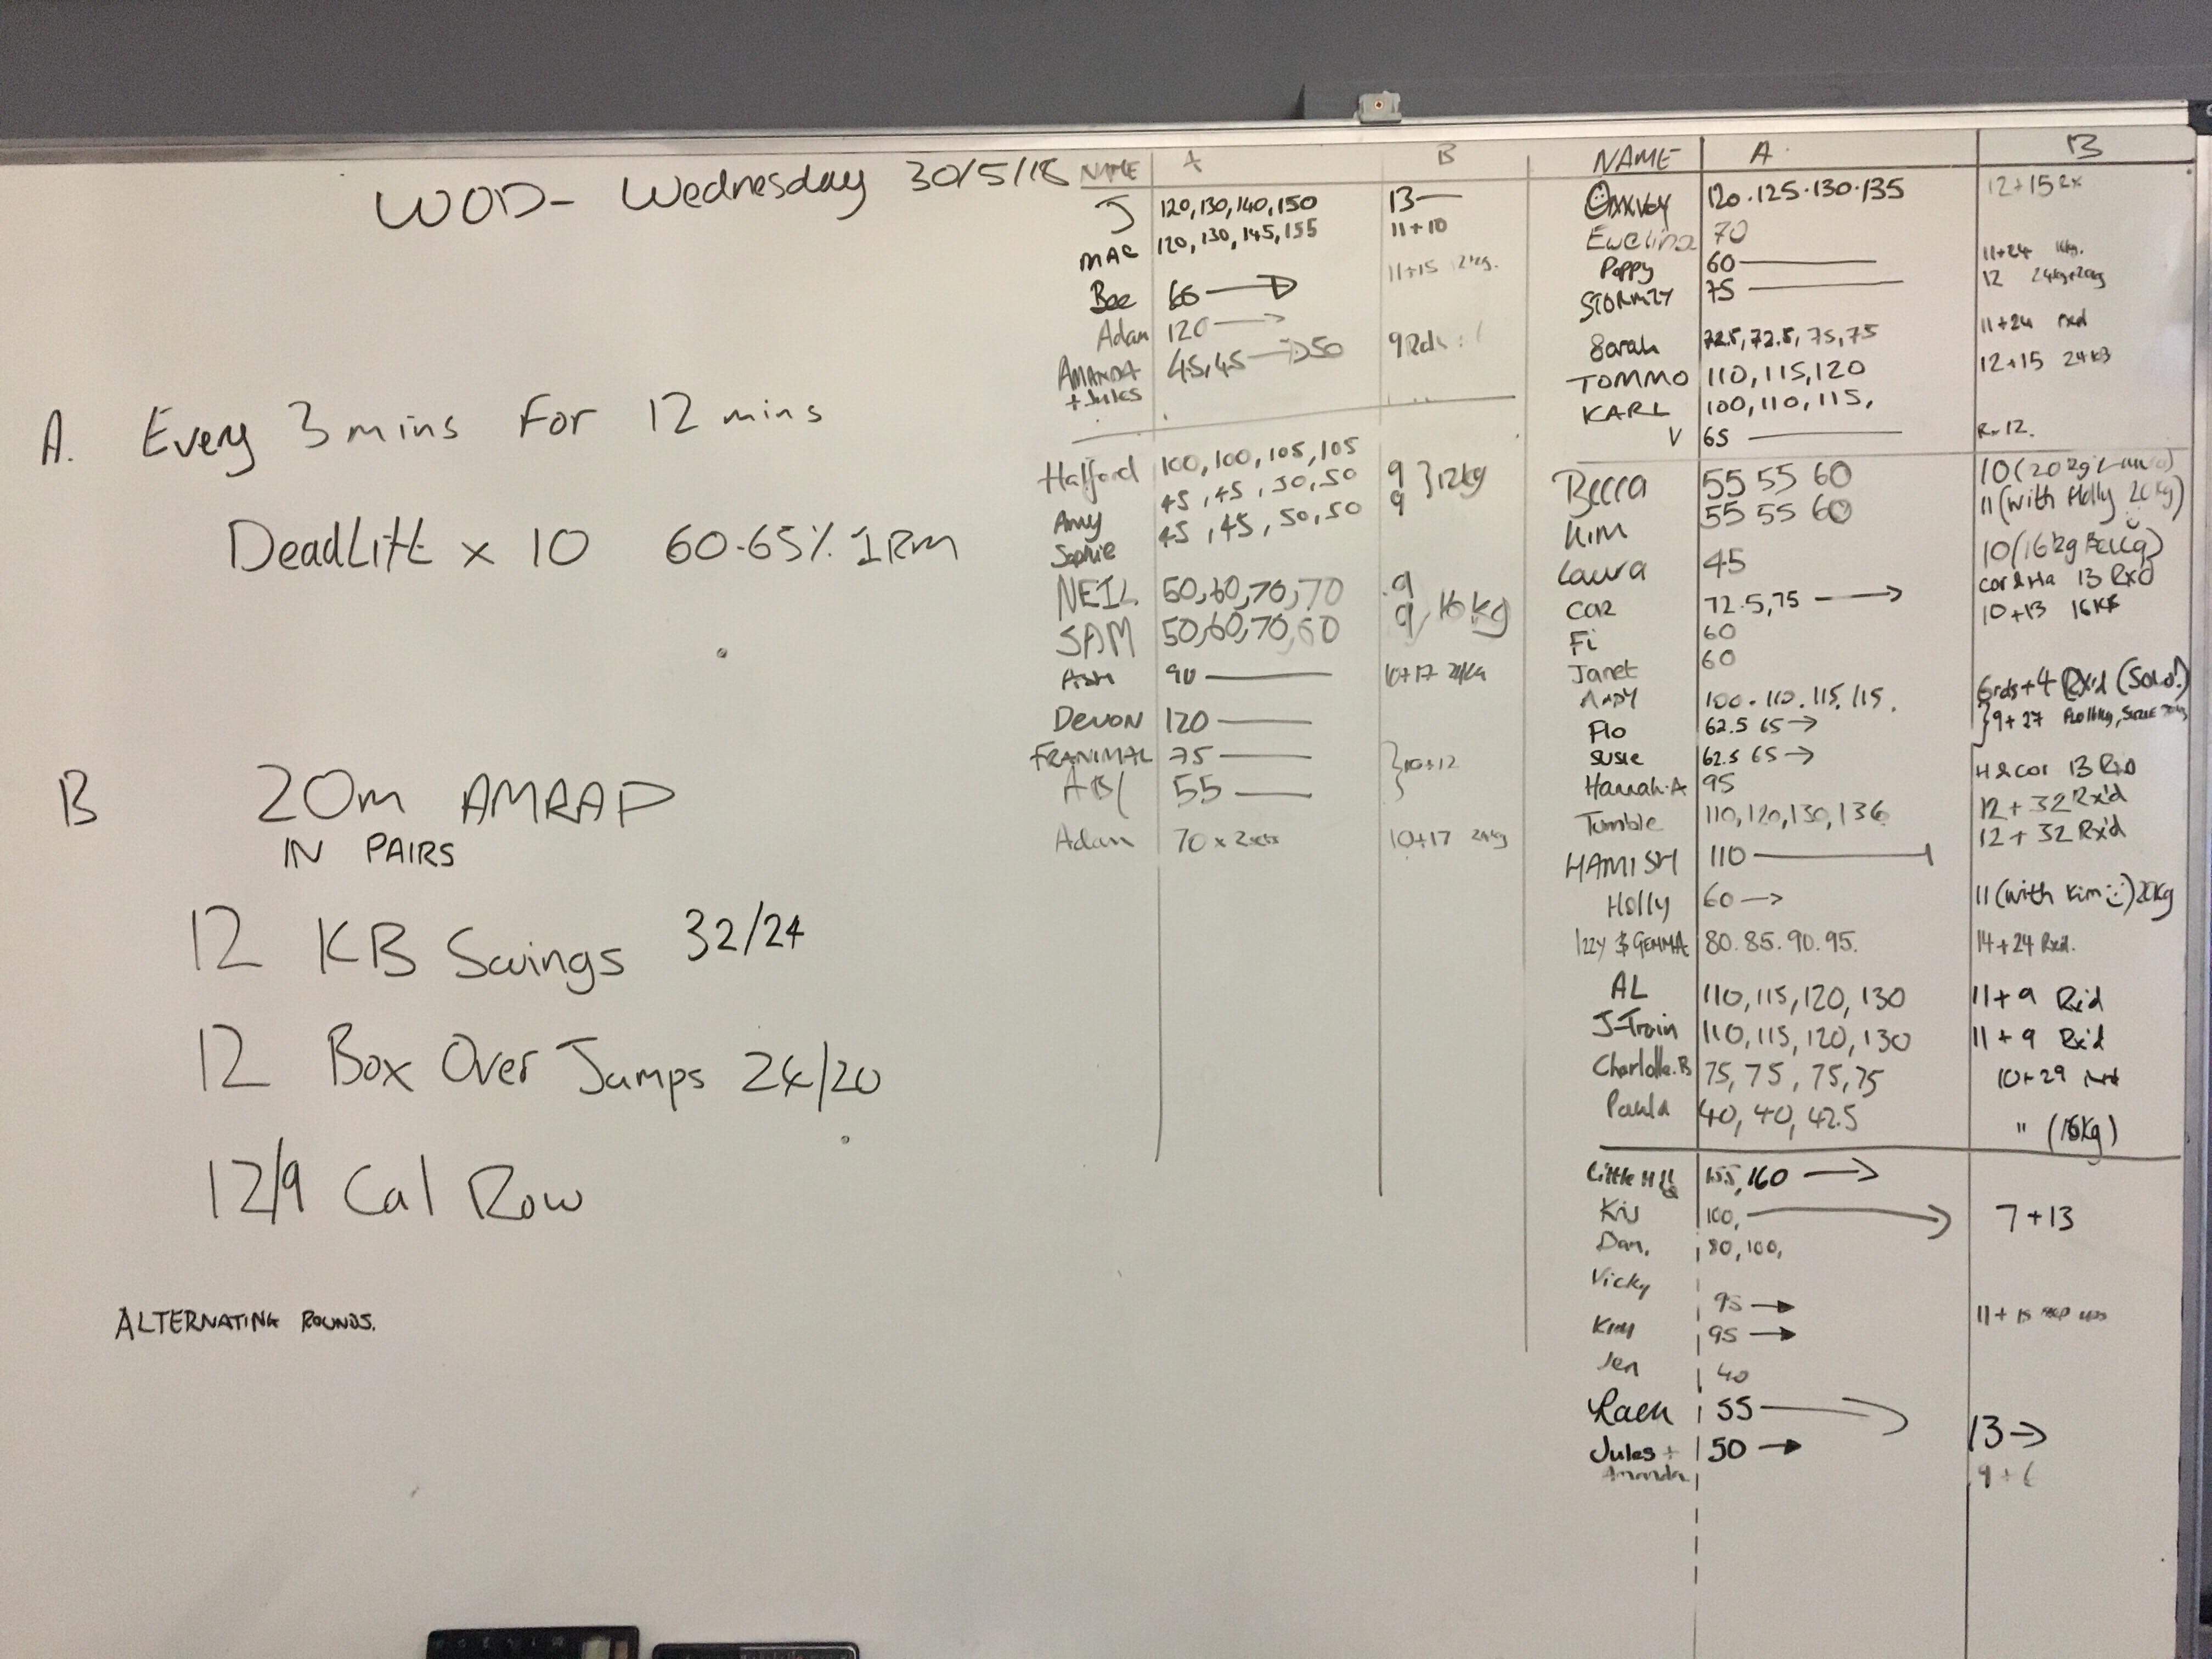 WOD - Wednesday 30/5/18
A. Every 3 mins For 12 mins
DeadLift x 10 60-65% 1RM
B 20m AMRAP
IN PAIRS
12 KB Swings 32/24
12 Box Over Jumps 24/20
12/9 Cal Row
ALTERNATING ROUNDS.
NAME A B
J 120, 130, 140, 150 13
MAC 120, 130, 145, 155 11+10
Bee 60 → 11+15 12kg.
Adan 120 →
AMANDA + Jules 45, 45 → 50 9 Rds
Halford 100, 100, 105, 105 9 } 12kg
Amy 45, 45, 50, 50 9
Sophie 45, 45, 50, 50
NEIL 50, 60, 70, 70 9
SAM 50, 60, 70, 60 9, 16kg
Ash 90 10+17 24kg
DEVON 120
FRANIMAL 75 } 10+12
55
Adan 70 x 2 sets 10+17 24kg
NAME A B
120. 125. 130. 135 12+15 Rx
Ewelina 70
Poppy 60 11+24 16kg.
STORMZY 75 12 24kg+20kg
Sarah 72.5, 72.5, 75, 75 11+24 rxd
TOMMO 110, 115, 120 12+15 24KB
KARL 100, 110, 115,
V 65 Rx 12.
Becca 55 55 60 10 (20kg
Kim 55 55 60 11 (with Holly 20kg)
Laura 45 10 (16kg Becca)
Cor 72.5, 75 → cor & Ha 13 Rxd
Fi 60 10+13 16KG
Janet 60
ANDY 100. 110. 115. 115. 6rds+4 RX'd (Solo!)
Flo 62.5 65 → } 9+27 Flo 16kg, Susie 20kg
Susie 62.5 65 →
Hannah.A 95 H & cor 13 Rxd
Tumble 110, 120, 130, 136 12+32 Rx'd
HAMISH 110 12+32 Rx'd
Holly 60 → 11 (with Kim) 20kg
Izzy & GEMMA 80. 85. 90. 95. 14+24 Rxd.
AL 110, 115, 120, 130 11+9 Rx'd
J-Train 110, 115, 120, 130 11+9 Rx'd
Charlotte.B 75, 75, 75, 75 10+29 rxd
Paula 40, 40, 42.5 " (16kg)
Little H 155, 160 →
Kris 100, → 7+13
Dan. 80, 100,
Vicky 95 →
Kim 95 → 11+15 step ups
Jen 40
Rach 55 → 13 →
Jules + Amanda 50 → 9+6